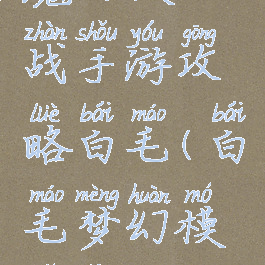 zhàn shǒu yóu gōng
战手游攻
lüè bái máo bái
略白毛(白
máo mèng huàn mó
毛梦幻模